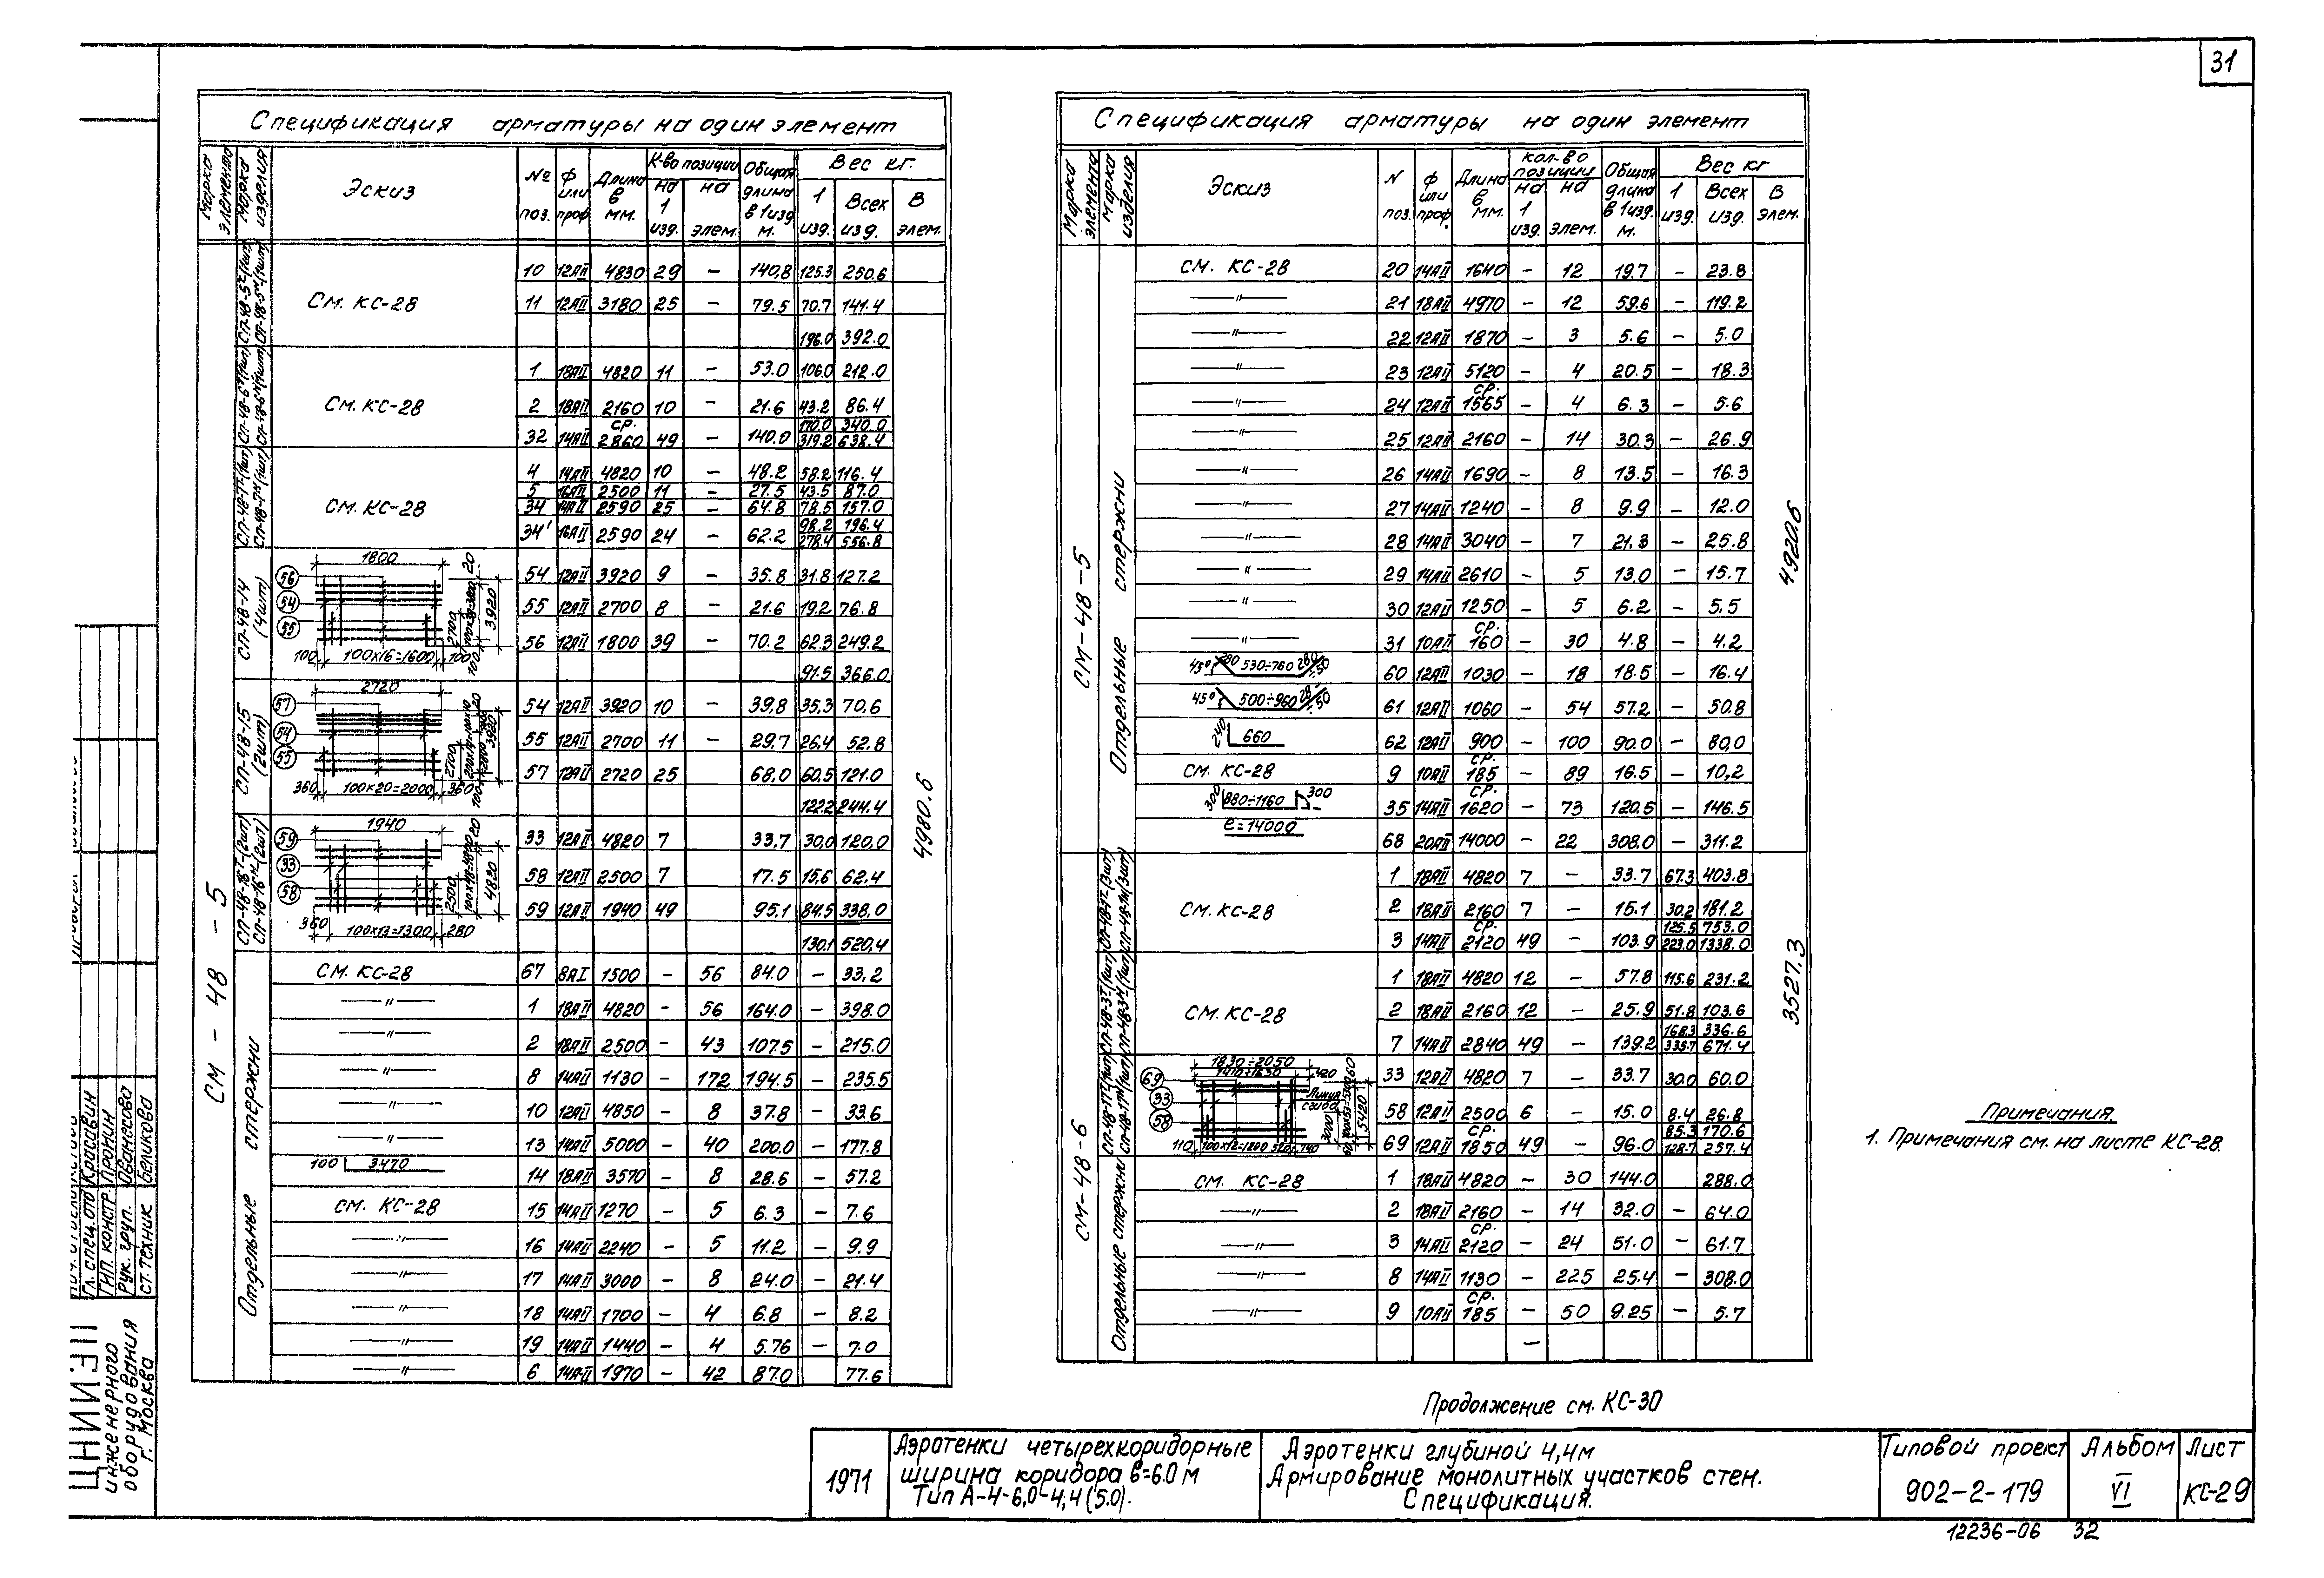 31
Спецификация арматуры на один элемент
Марка элемента | Марка изделия | Эскиз | № поз. | ф или проф | Длина в мм. | К-во позиции на 1 изд. | на элем. | Общая длина в 1 изд м. | Вес кг. 1 изд. | Всех изд. | В элем.
СМ-48-5
См. КС-28
10 12АII 4830 29 – 140,8 125.3 250.6
11 12АII 3180 25 – 79.5 70.7 141.4
196.0 392.0
См. КС-28
1 18АII 4820 11 – 53.0 106.0 212.0
2 18АII 2160 10 – 21.6 43.2 86.4
170.0 340.0
32 14АII ср. 2860 49 – 140.0 319.2 638.4
См. КС-28
4 14АII 4820 10 – 48.2 58.2 116.4
5 16АII 2500 11 – 27.5 43.5 87.0
34 14АII 2590 25 – 64.8 78.5 157.0
98.2 196.4
34' 16АII 2590 24 – 62.2 278.4 556.8
СП-48-14 (4шт)
1800
56 54 55
100 100х16=1600 100
2700 3920 20
54 12АII 3920 9 – 35.8 31.8 127.2
55 12АII 2700 8 – 21.6 19.2 76.8
56 12АII 1800 39 – 70.2 62.3 249.2
91.5 366.0
СП-48-15 (2шт)
2720
57 54 55
360 100х20=2000 360
2700 3920 20
54 12АII 3920 10 – 39,8 35,3 70.6
55 12АII 2700 11 – 29.7 26.4 52.8
57 12АII 2720 25 68.0 60.5 121.0
122.2 244.4
4980.6
1940
59 33 58
360 100х13=1300 280
2500 100х48=4800 4820 20
33 12АII 4820 7 33,7 30,0 120,0
58 12АII 2500 7 17.5 15,6 62.4
59 12АII 1940 49 95.1 84.5 338.0
130.1 520,4
Отдельные стержни
См. КС-28 67 8АI 1500 – 56 84.0 – 33,2
–"– 1 18АII 4820 – 56 164.0 – 398.0
–"– 2 18АII 2500 – 43 107.5 – 215.0
–"– 8 14АII 1130 – 172 194.5 – 235.5
–"– 10 12АII 4850 – 8 37.8 – 33.6
–"– 13 14АII 5000 – 40 200.0 – 177.8
100 3470 14 18АII 3570 – 8 28.6 – 57.2
см. КС-28 15 14АII 1270 – 5 6.3 – 7.6
–"– 16 14АII 2240 – 5 11.2 – 9.9
–"– 17 14АII 3000 – 8 24.0 – 21.4
–"– 18 14АII 1700 – 4 6.8 – 8.2
–"– 19 14АII 1440 – 4 5.76 – 7.0
–"– 6 14АII 1970 – 42 87.0 77.6
Спецификация арматуры на один элемент
Марка элемента | Марка изделия | Эскиз | N поз. | ф или проф. | Длина в мм. | кол-во позиции на 1 изд. | на элем. | Общая длина в 1 изд. м. | Вес кг 1 изд. | Всех изд. | В элем.
СМ-48-5
Отдельные стержни
См. КС-28 20 14АII 1640 – 12 19.7 – 23.8
–"– 21 18АII 4970 – 12 59.6 – 119.2
–"– 22 12АII 1870 – 3 5.6 – 5.0
–"– 23 12АII 5120 – 4 20.5 – 18.3
–"– 24 12АII ср. 1565 – 4 6.3 – 5.6
–"– 25 12АII 2160 – 14 30.3 – 26.9
–"– 26 14АII 1690 – 8 13.5 – 16.3
–"– 27 14АII 1240 – 8 9.9 – 12.0
–"– 28 14АII 3040 – 7 21.3 – 25.8
–"– 29 14АII 2610 – 5 13.0 – 15.7
–"– 30 12АII 1250 – 5 6.2 – 5.5
–"– 31 10АII ср. 160 – 30 4.8 – 4.2
45° 280 530÷760 280 60 12АII 1030 – 18 18.5 – 16.4
45° 500÷960 61 12АII 1060 – 54 57.2 – 50.8
240 660 62 12АII 900 – 100 90.0 – 80,0
См. КС-28 9 10АII ср. 185 – 89 16.5 – 10,2
300 880÷1160 300 35 14АII ср. 1620 – 73 120.5 – 146.5
е=14000 68 20АII 14000 – 22 308.0 – 311.2
4920.6
СМ-48-6
См. КС-28
1 18АII 4820 7 – 33.7 67.3 403.8
2 18АII 2160 7 – 15.1 30.2 181.2
125.5 753.0
3 14АII ср. 2120 49 – 103.9 223.0 1338.0
См. КС-28
1 18АII 4820 12 – 57.8 115.6 231.2
2 18АII 2160 12 – 25.9 51.8 103.6
168.3 336.6
7 14АII 2840 49 – 139.2 335.7 671.4
1830÷2050
1410÷1630 420
69 33 58
Линия сгиба
110 100х12=1200 520÷740
3000 5420
33 12АII 4820 7 – 33.7 30.0 60.0
58 12АII 2500 6 – 15.0 8.4 26.8
85.3 170.6
69 12АII ср. 1850 49 – 96.0 128.7 257.4
3527.3
Отдельные стержни
См. КС-28 1 18АII 4820 – 30 144.0 288.0
–"– 2 18АII 2160 – 14 32.0 – 64.0
–"– 3 14АII ср. 2120 – 24 51.0 – 61.7
–"– 8 14АII 1130 – 225 25.4 – 308.0
–"– 9 10АII ср. 185 – 50 9.25 – 5.7
–
Примечания.
1. Примечания см. на листе КС-28.
Продолжение см. КС-30
Гл. спец. отд Красавин
ГИП. констр. Пронин
Рук. груп. Ованесова
ст. техник Беликова
инженерного
оборудования
г. Москва
1971
Аэротенки четырехкоридорные
ширина коридора в=6.0м
Тип А-4-6,0-4,4(5.0).
Аэротенки глубиной 4,4м
Армирование монолитных участков стен.
Спецификация.
Типовой проект
902-2-179
Альбом
VI
Лист
КС-29
12236-06 32